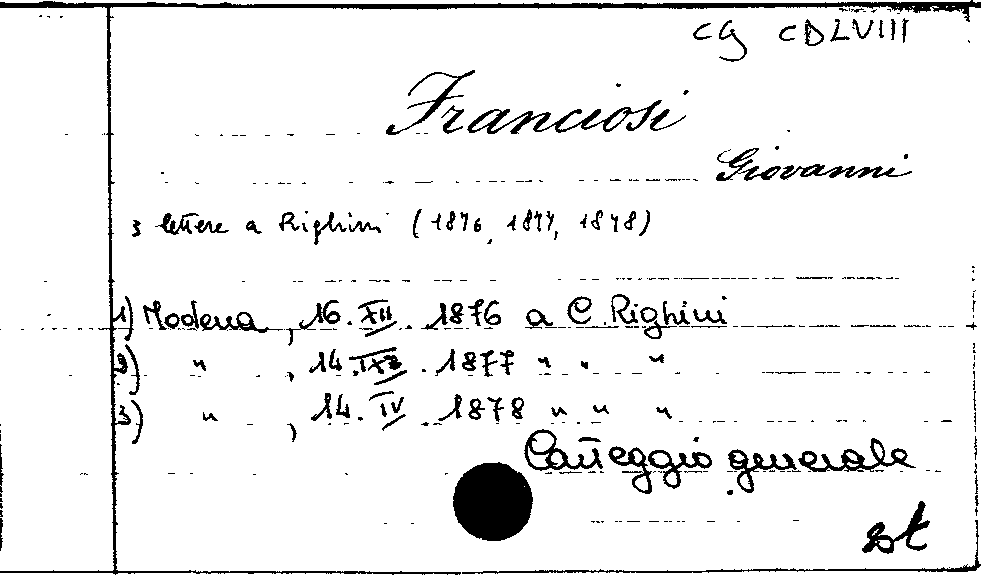 CG CDLVIII
Franciosi
Giovanni
3 lettere a Righini (1876, 1877, 1878)
1) Modena, 16. XII. 1876 a C. Righini
2) " , 14. . 1877 " " "
3) " , 14. IV. 1878 " " "
Carteggio generale